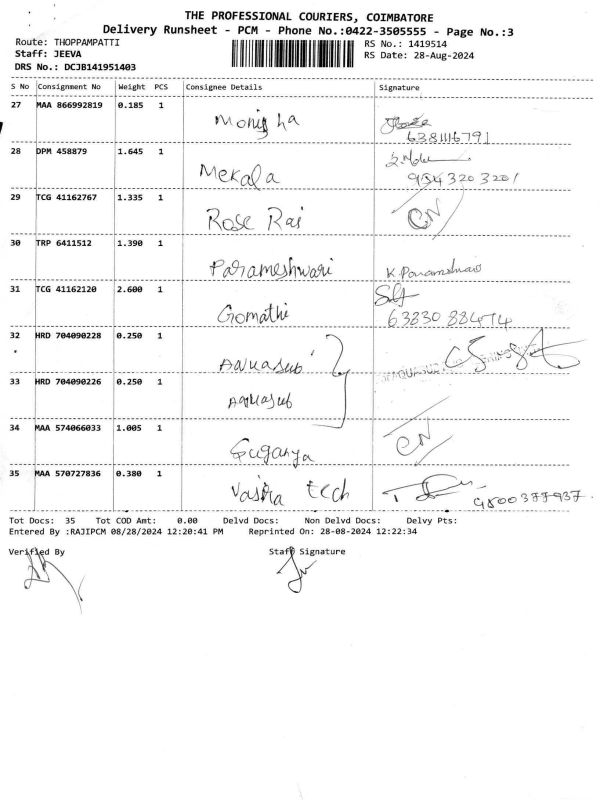 THE PROFESSIONAL COURIERS, COIMBATORE
Delivery Runsheet - PCM - Phone No.:0422-3505555 - Page No.:3
Route: THOPPAMPATTI RS No.: 1419514
Staff: JEEVA RS Date: 28-Aug-2024
DRS No.: DCJB141951403
S No Consignment No Weight PCS Consignee Details Signature
27 MAA 866992819 0.185 1 Monisha
6381116791
28 DPM 458879 1.645 1 Mekala
9543203201
29 TCG 41162767 1.335 1 Rose Raj CN
30 TRP 6411512 1.390 1 Parameshwari K. Parameshwari
31 TCG 41162120 2.600 1 Gomathi Self
6383088474
32 HRD 704090228 0.250 1 Aquasub
33 HRD 704090226 0.250 1 Aquasub
34 MAA 574066033 1.005 1 Suganya CN
35 MAA 570727836 0.380 1 Vasitra tech 9500377937.
Tot Docs: 35 Tot COD Amt: 0.00 Delvd Docs: Non Delvd Docs: Delvy Pts:
Entered By :RAJIPCM 08/28/2024 12:20:41 PM Reprinted On: 28-08-2024 12:22:34
Verified By Staff Signature